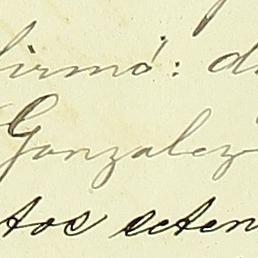 firmó: d
Gonzalez
tos eten